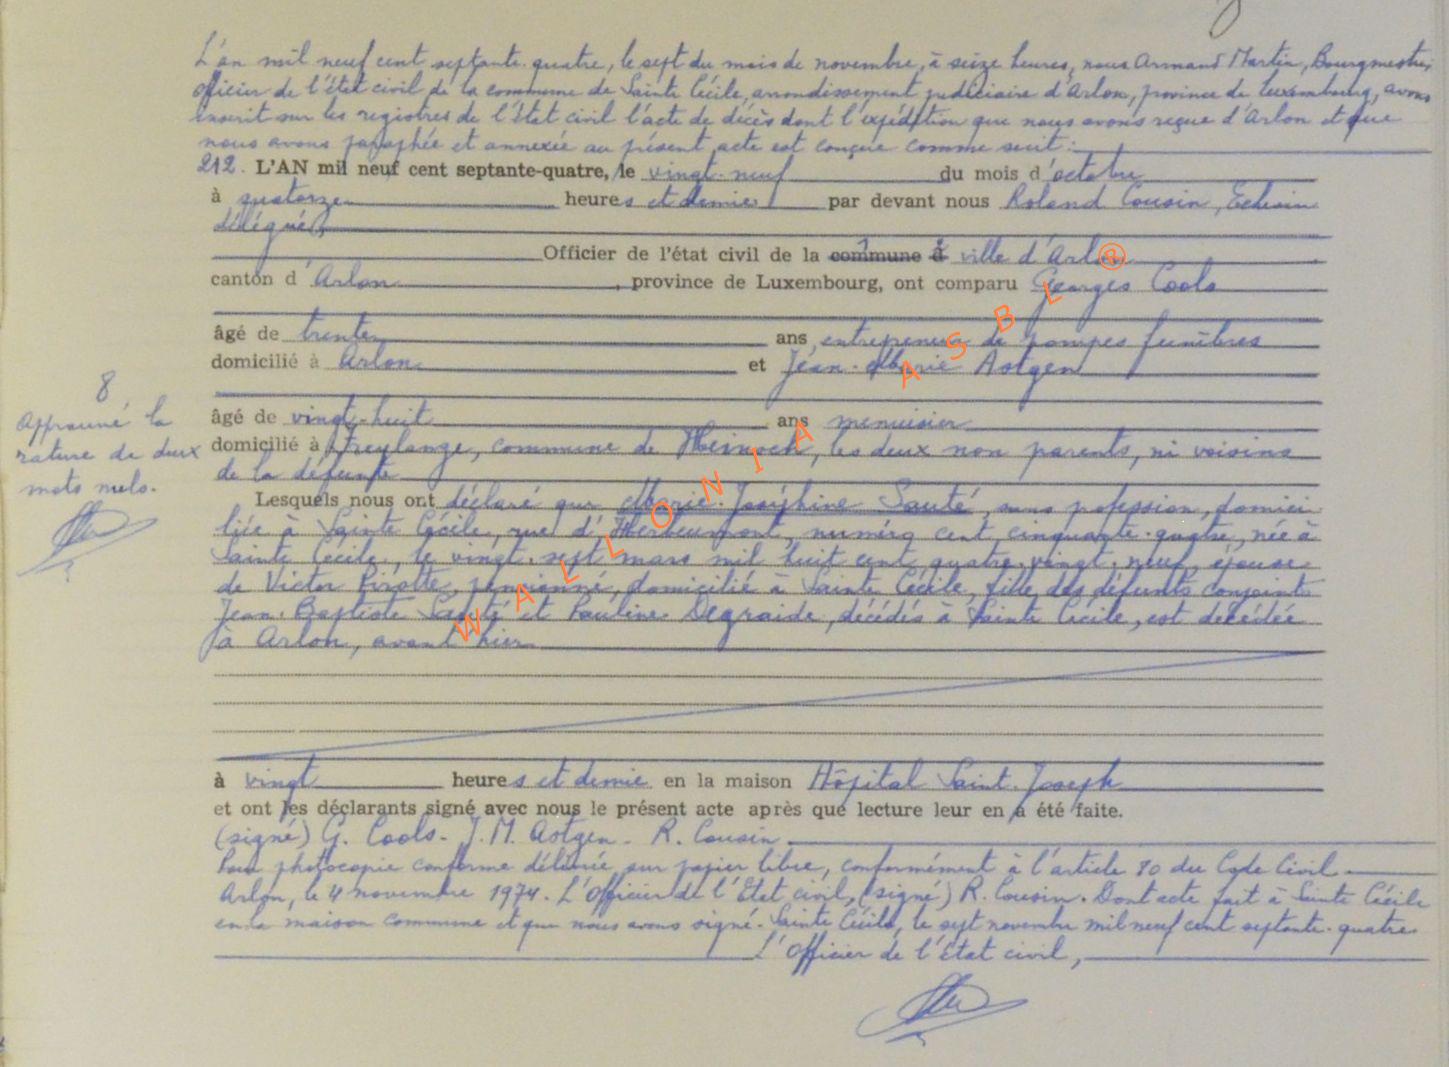 L'an mil neuf cent septante-quatre, le sept du mois de novembre, à seize heures, nous Armand Martin, Bourgmestre,
officier de l'état civil de la commune de Sainte Cécile, arrondissement judiciaire d'Arlon, province de Luxembourg, avons
inscrit sur les registres de l'État civil l'acte de décès dont l'expédition que nous avons reçue d'Arlon et que
nous avons paraphée et annexée au présent acte est conçue comme suit :
212. L'AN mil neuf cent septante-quatre, le vingt-neuf du mois d'octobre
à quatorze heures et demie par devant nous Roland Cousin, Echevin
délégué,
Officier de l'état civil de la commune d ville d'Arlon
canton d'Arlon, province de Luxembourg, ont comparu Georges Cools
âgé de trente ans, entrepreneur de pompes funèbres
domicilié à Arlon et Jean-Marie Astgen
8
Approuvé la
rature de deux
mots nuls.
âgé de vingt-huit ans menuisier
domicilié à Freylange, commune de Heinsch, les deux non parents, ni voisins
de la défunte
Lesquels nous ont déclaré que Marie-Joséphine Sauté, sans profession, domici-
liée à Sainte Cécile, rue d'Herbeumont, numéro cent cinquante-quatre, née à
Sainte Cécile, le vingt-sept mars mil huit cent quatre-vingt-neuf, épouse
de Victor Pirotte, pensionné, domicilié à Sainte Cécile, fille des défunts conjoints
Jean-Baptiste Sauté et Pauline Degraide, décédés à Sainte Cécile, est décédée
à Arlon, avant hier
à vingt heures et demie en la maison Hôpital Saint-Joseph
et ont les déclarants signé avec nous le présent acte après que lecture leur en a été faite.
(signé) G. Cools - J.M. Astgen - R. Cousin
Pour photocopie conforme délivrée sur papier libre, conformément à l'article 80 du Code Civil
Arlon, le 4 novembre 1974. L'Officier de l'Etat civil, (signé) R. Cousin. Dont acte fait à Sainte Cécile
en la maison commune et que nous avons signé. Sainte Cécile, le sept novembre mil neuf cent septante-quatre
L'Officier de l'Etat civil,
WALLONIA ASBL ®